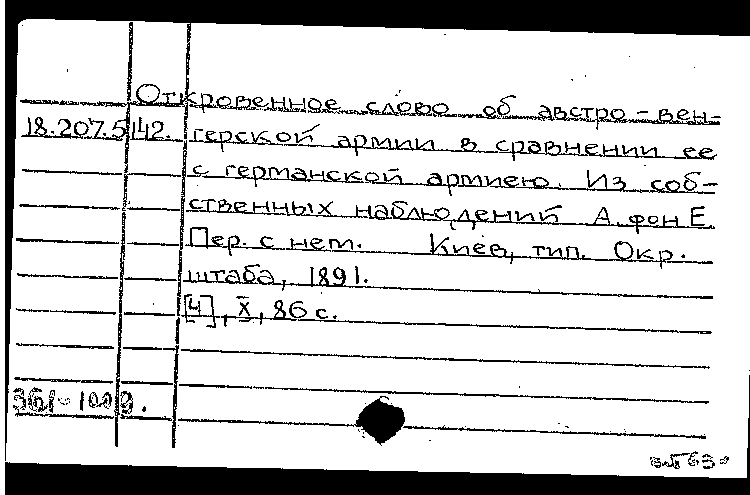 Откровенное слово об австро-вен-
18.207.5.142. герской армии в сравнении ее
с германской армиею. Из соб-
ственных наблюдений А. фон Е.
Пер. с нем. Киев, тип. Окр.
штаба, 1891.
[4], X, 86 с.